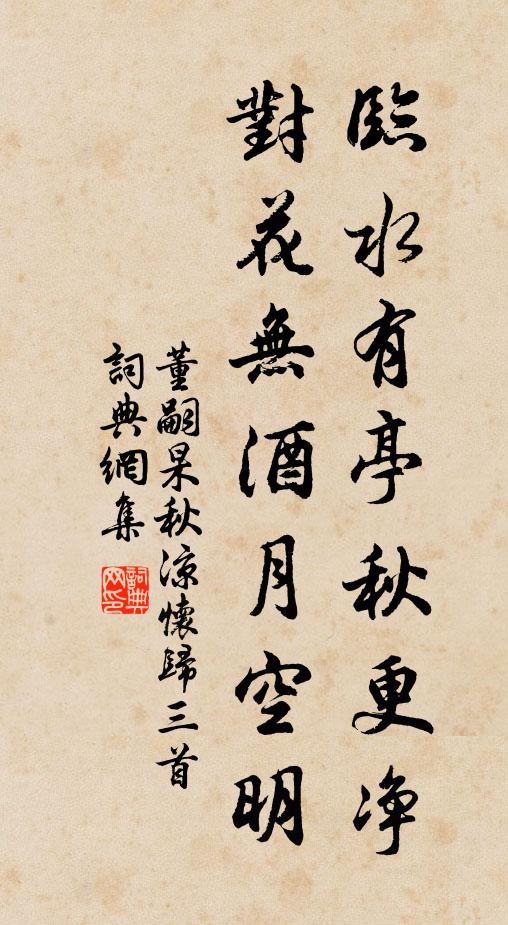 臨水有亭秋更净
對花無酒月空明
董嗣杲秋涼懷歸三首
詞典網集
詞典網印